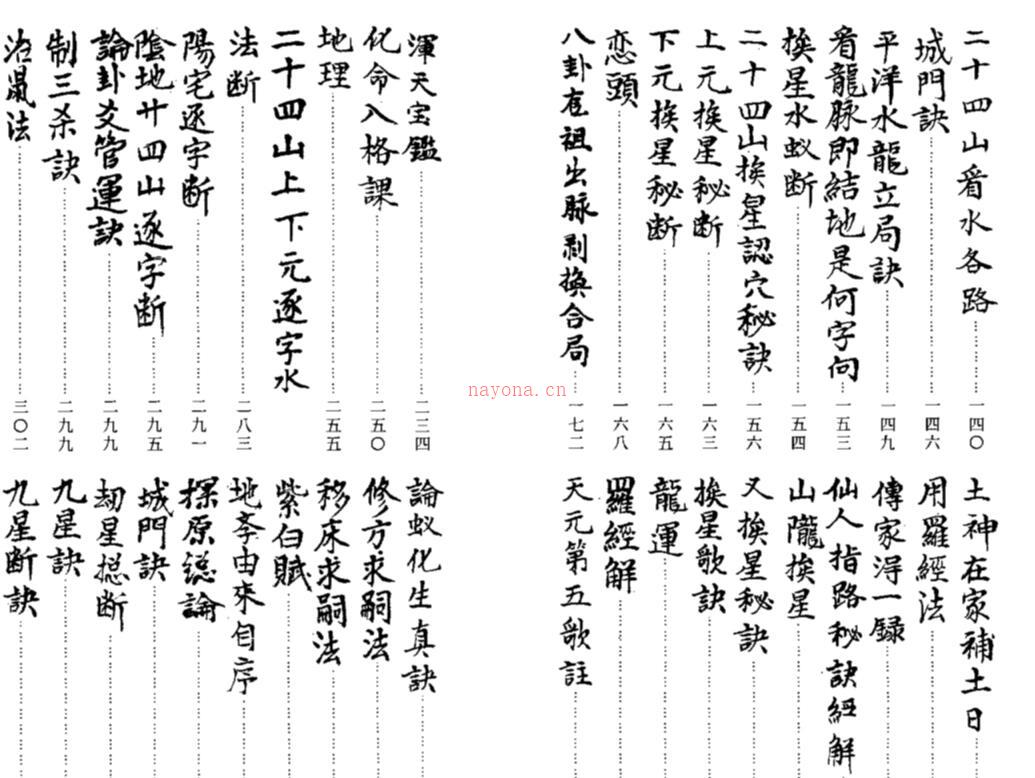 二十四山看水各路……一四〇
城門訣……一四六
平洋水龍立局訣……一四九
看龍脉即結地是何字向……一五三
挨星水蚁断……一五四
二十四山挨星認穴秘訣……一五六
上元挨星秘断……一六三
下元挨星秘断……一六五
恋頭……一六八
八卦在祖出脉剥換合局……一七二
土神在家補土日……
用羅經法……
傳家淂一録……
仙人指路秘訣經解……
山隴挨星……
又挨星秘訣……
挨星歌訣……
龍運……
羅經解……
天元第五歌註……
渾天宝鑑……二三四
化命入格課……二五〇
地理……二五五
二十四山上下元逐字水
法断……二八三
陽宅逐字断……二九一
陰地廿四山逐字断……二九五
論卦爻管運訣……二九九
制三杀訣……二九九
治鼠法……三〇二
論蚁化生真訣……
修方求嗣法……
移床求嗣法……
紫白賦……
地李由來自序……
探原總論……
城門訣……
劫星捴断……
九星訣……
九星断訣……
nayona.cn